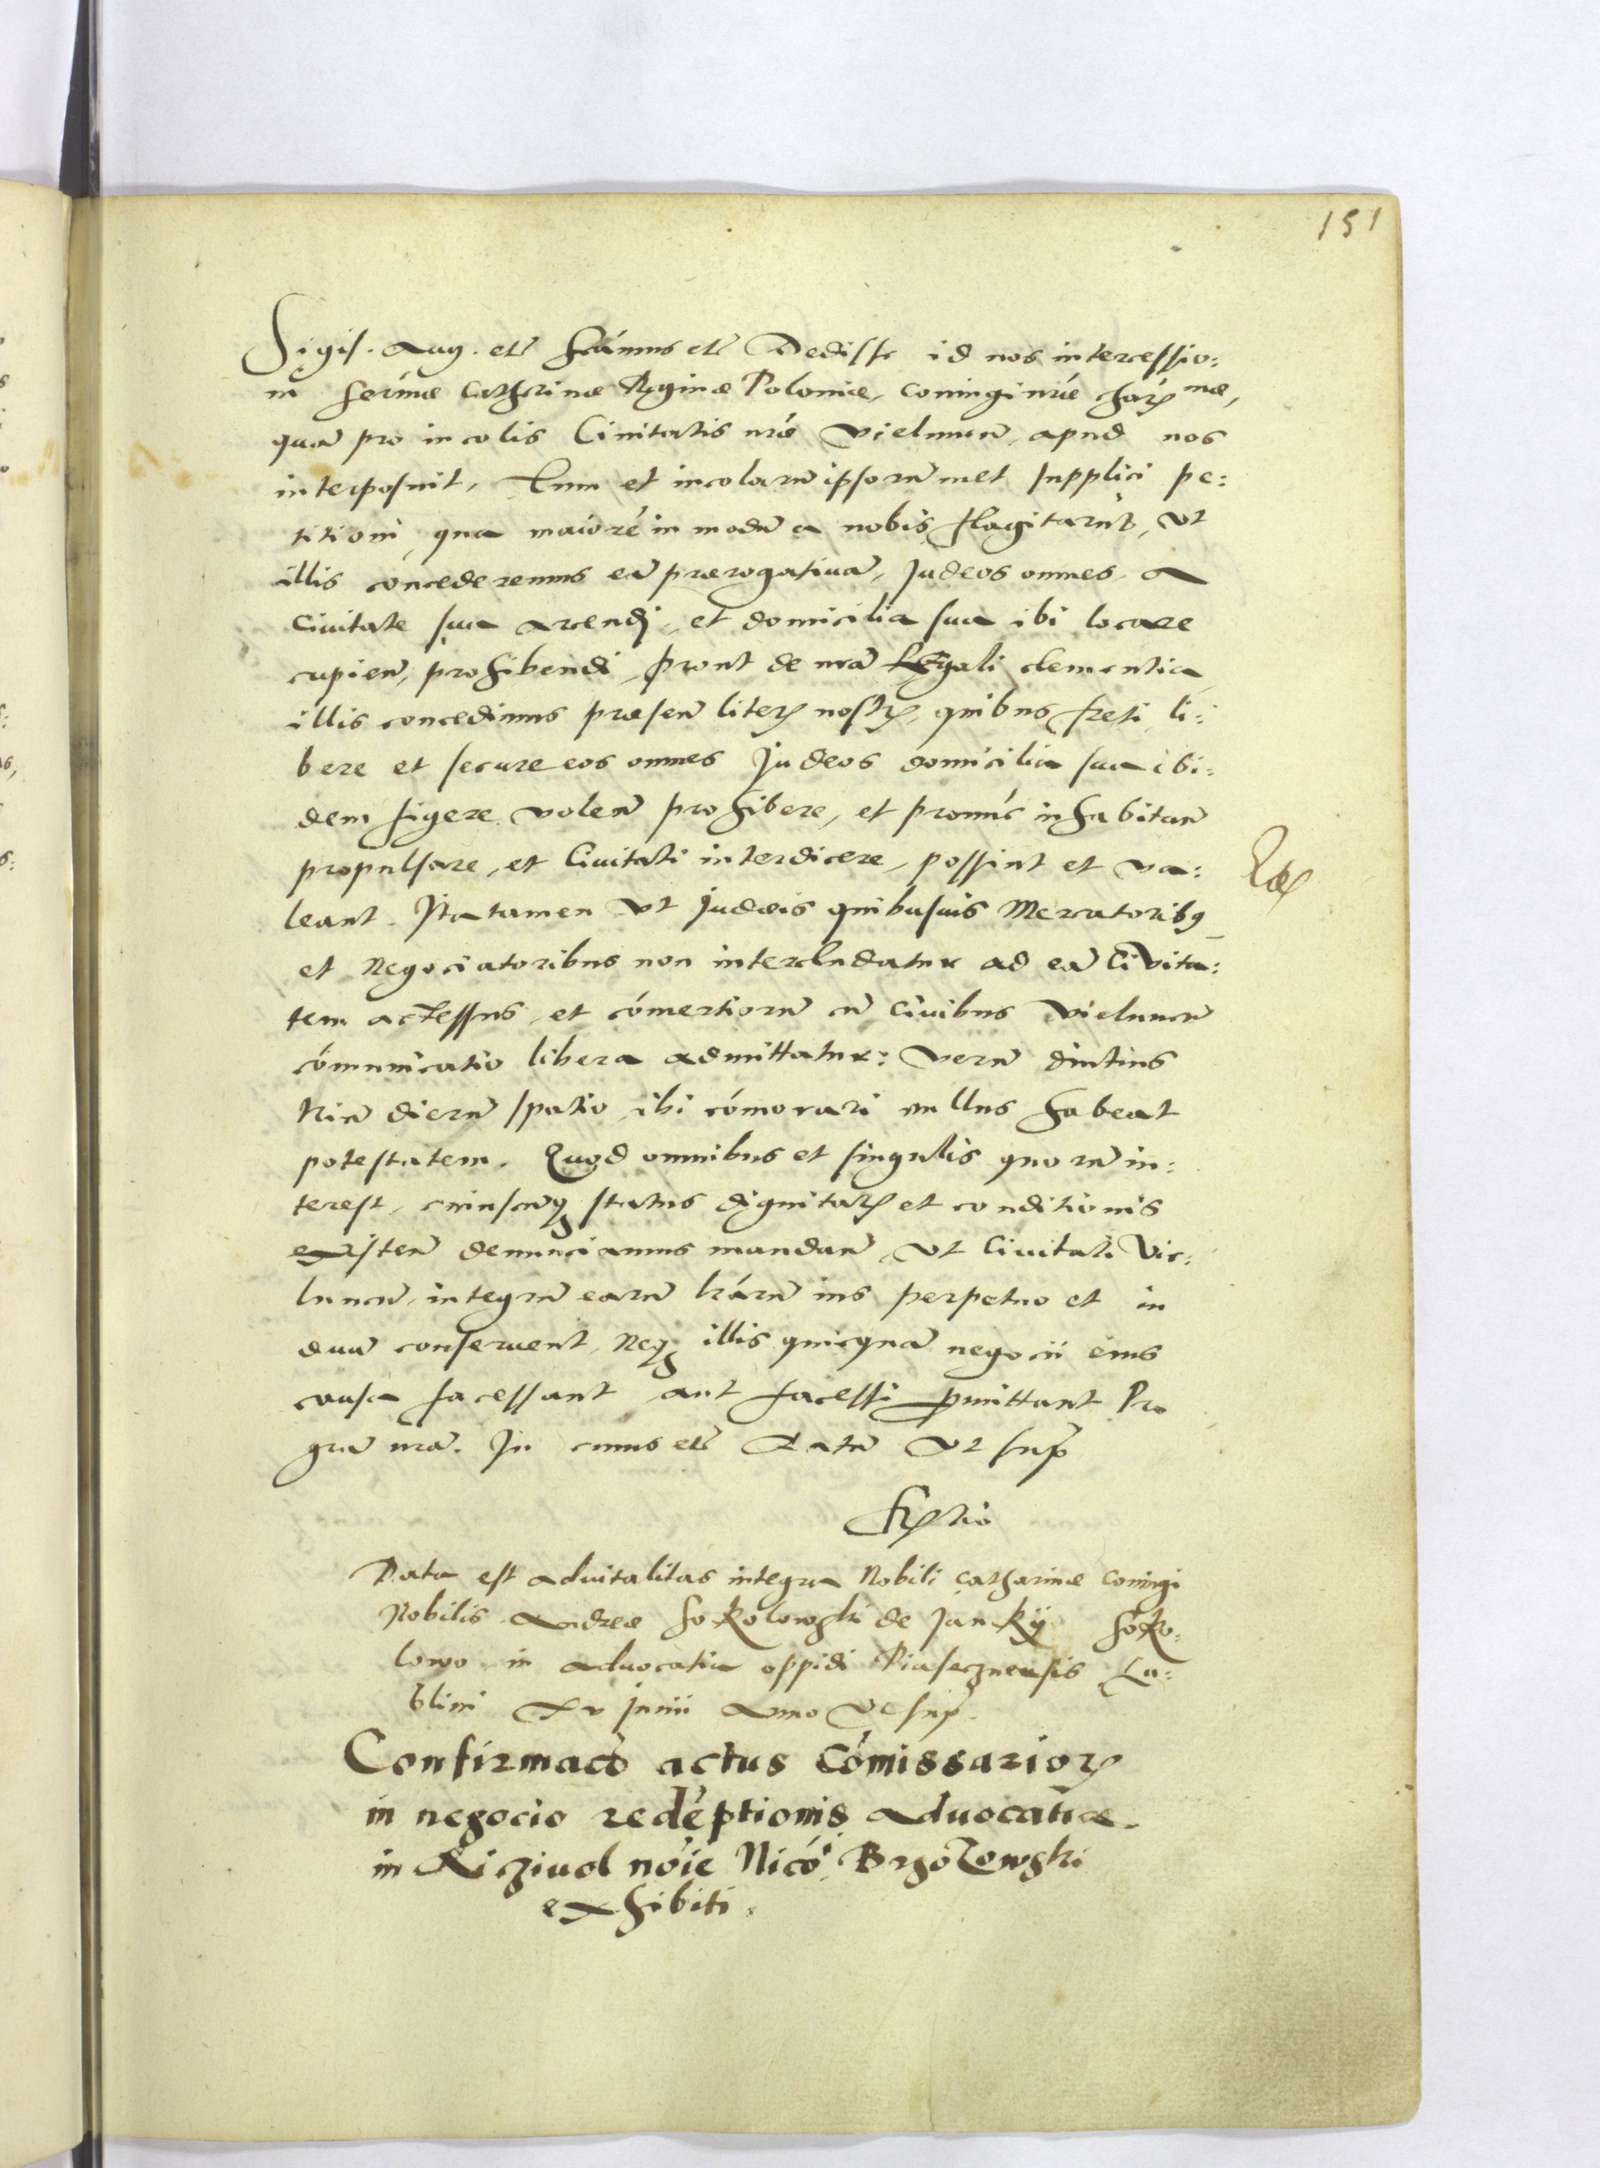 151
Sigis. Aug. etc̃ Scimus etc̃ Dedisse id nos intercessio:
ni Sermæ Catherinæ Reginæ Poloniæ, coniugi nr̃e char̃ næ,
quã pro incolis Ciuitatis nr̃e Vielunen̄, apud nos
interposuit, Tum et incolarũ ipsorũmet supplici pe:
titioni, qua maiorẽ in modũ a nobis flagitarũt, vt
illis concederemus eã prærogatiuã, Judeos omnes a
Ciuitate sua arcendj, et domicilia sua ibi locare
cupien̄, prohibendi, prout de nr̃a Regali clementia
illis concedimus præsen̄ literꝭ nostrꝭ, quibus freti li:
bere et secure eos omnes Judeos domicilia sua ibi:
dem figere volen̄ prohibere, et pronũc inhabitan̄
propulsare, et Ciuitati interdicere, possint et va:
leant. Ita tamen vt Judæis quibusuis Mercatoribꝰ
et Negociatoribus non intercludatur ad eã Civita:
tem accessus, et cõmertiorũ cũ Ciuibus Vielunen̄
cõmunicatio libera admittatur: verũ diutius
triũ dierũ spatio ibi cõmorari nullus habeat
potestatem. Quod omnibus et singulis quorũ in:
terest, cuiuscũqꝫ status dignitatꝭ et conditionis
existen̄ denunciamus mandan̄, vt Ciuitati Vie:
lunen̄, integrũ earũ lr̃arũ ius perpetuo et in
æuũ conseruent, Neqꝫ illis quicquã negocii eius
causa facessant aut facessi ꝑmittant Pro
gr̃a nr̃a. In cuius etc̃ Datũ vt supꝛ
Data est aduitalitas integra Nobili Catharinæ Coniugi
Nobilis Andreæ Sokolowski de Janki Soko:
lowo in aduocatia oppidi Piasecznensis Lu:
blini xv Junii Anno vt sup.
Confirmaco actus Cõmissariorꝝ
in negocio redẽptionis aduocatiæ
in Ricziuol noie Nico Brzozowski
exhibiti.